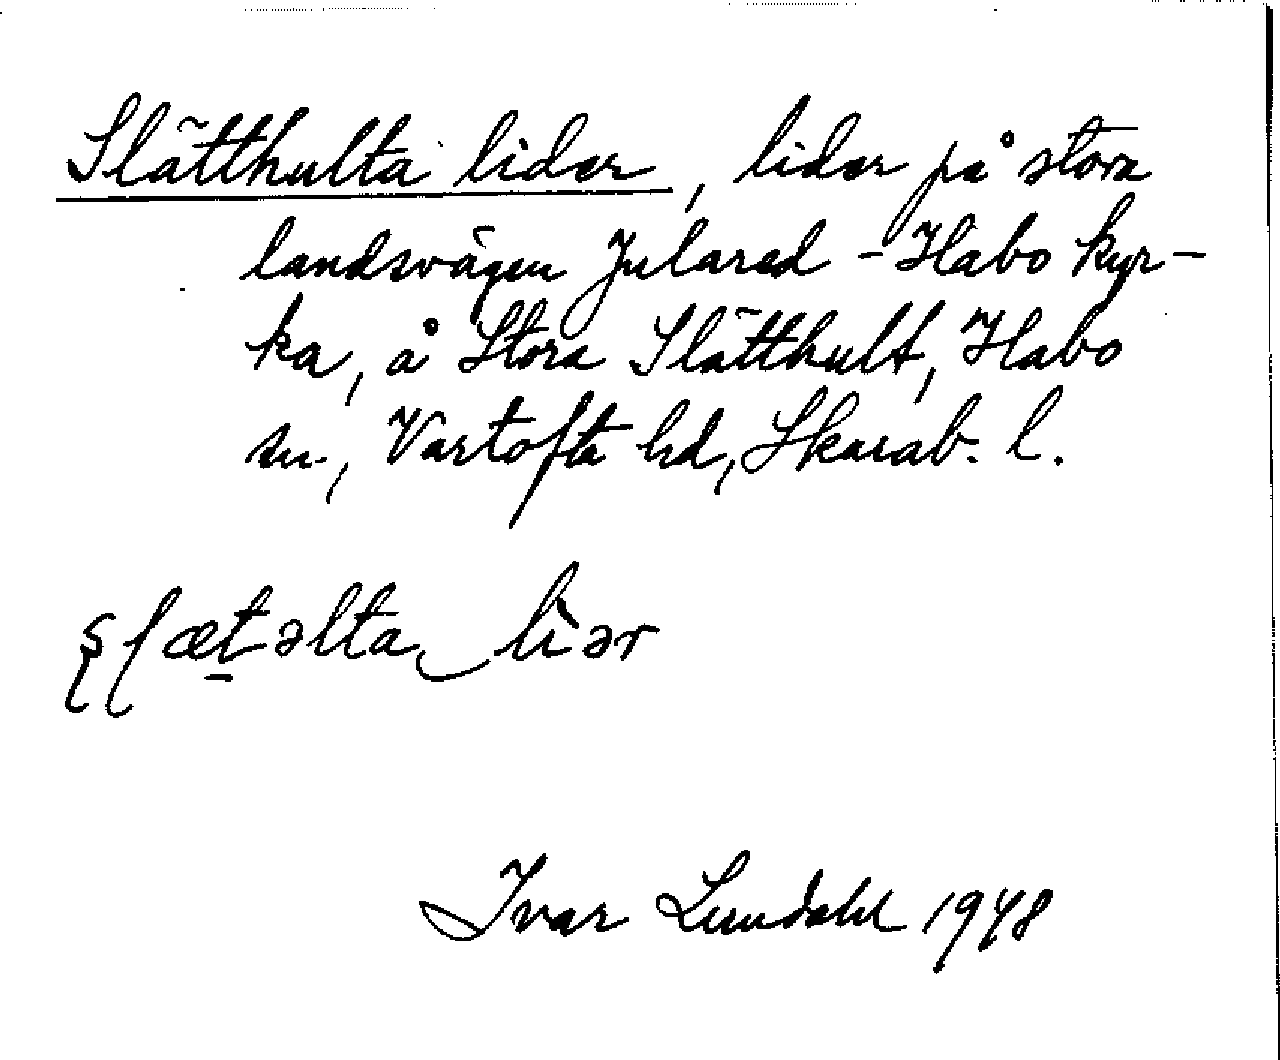 Slätthulta lider, lider på stora
landsvägen Julared - Habo kyr-
ka, å Stora Slätthult, Habo
sn, Vartofta hd, Skarab. l.
Ivar Lundahl 1948